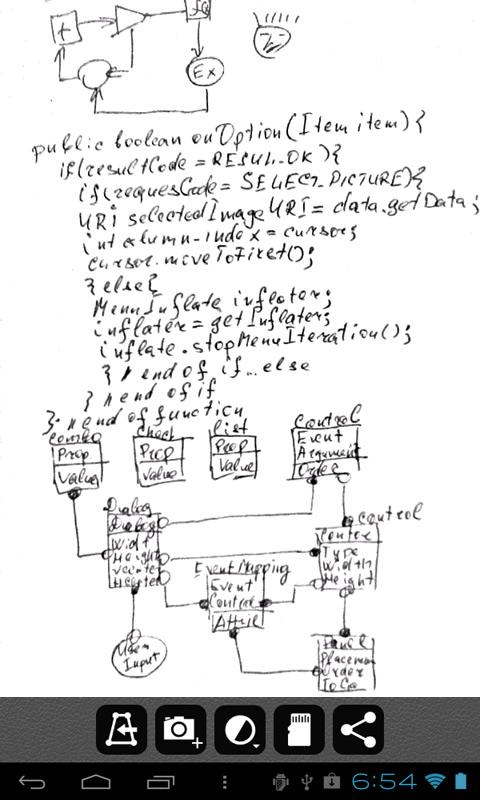 +
Ex
public boolean onOption(Item item){
if(resultCode = RESUL_OK){
if(requesCode = SELECT_PICTURE){
URi selectedImage URI = data.getData;
int column-index = cursor;
cursor.moveToFirst();
} else{
MenuInflate inflater;
inflater = getInflater;
inflate.stopMenuIteration();
} // end of if...else
} // end of if
}; // end of function
Combo
Prop
Value
Check
Prop
Value
List
Prop
Value
Control
Event
Argument
Order
Dialog
Dialog
Width
Height
Control
Type
Width
Height
Event Mapping
Event
Control
Attrib
User
Input
Panel
Placemen
Order
6:54